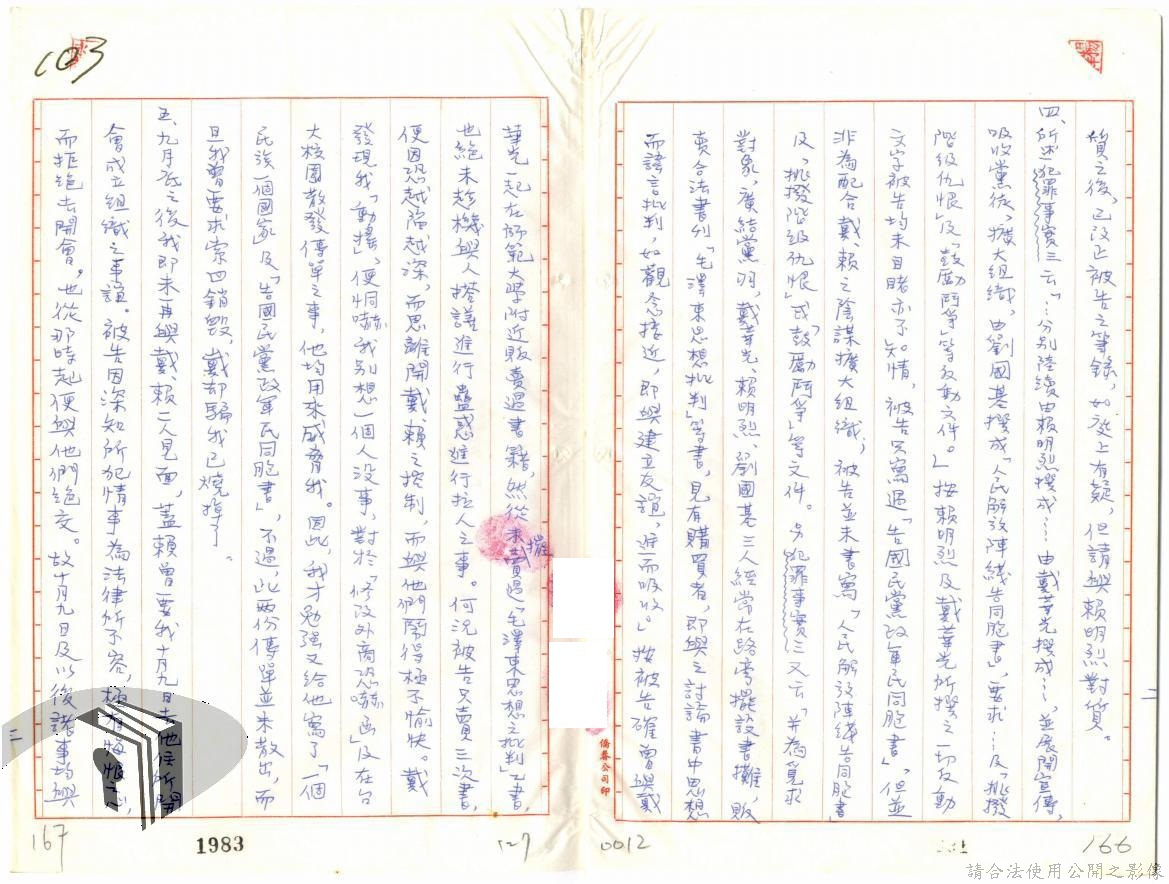 質之後，已改正被告之筆錄，如庭上有疑，但請與賴明烈對質。
四、所述犯罪事實三云「…分別陸續由賴明烈撰成……由戴華光撰成…，並展開宣傳，
吸收黨徒，擴大組織，由劉國基撰成「人民解放陣綫告同胞書」，要求……及「挑撥
階級仇恨」及「鼓勵鬥爭」等反動文件。」按賴明烈及戴華光所撰之一切反動
文字被告均未目睹亦不知情，被告只寫過「告國民黨政軍民同胞書」，但並
非為配合戴、賴之陰謀擴大組織，被告並未書寫「人民解放陣綫告同胞書」
及「挑撥階級仇恨」或「鼓勵鬥爭」等文件。另犯罪事實三又云「並為覓求
對象，廣結黨羽，戴華光、賴明烈、劉國基三人經常在路旁擺設書攤，販
賣合法書刊「毛澤東思想批判」等書，見有購買者，即與之討論書中思想
而諉言批判，如觀念接近，即與建立友誼，進而吸收。」按被告確曾與戴
166
0012
二
華光一起在師範大學附近販賣過書籍，然從未擺或賣過「毛澤東思想之批判」乙書，
也絕未趁機與人搭議進行蠱惑進行拉人之事。何況被告只賣三次書，
便因恐越陷越深，而思離開戴、賴之控制，而與他們鬧得極不愉快。戴
發現我「動搖」，便恫嚇我別想一個人沒事，對於「修改外商恐嚇函及在台
大校園散發傳單之事，他均用來威脅我。因此，我才勉強又給他寫了「一個
民族一個國家」及「告國民黨政軍民同胞書」，不過，此兩份傳單並未散出，而
且我曾要求索回銷毀，戴却騙我已燒掉了。
五、九月底之後我即未再與戴、賴二人見面，蓋賴曾要我十月九日去他住所開
會成立組織之事誼。被告因深知所犯情事為法律所不容，極有悔恨之心，
而拒絕去開會，也從那時起便與他們絕交。故十月九日及以後諸事均與
103
167
1983
527
三
僑春公司印
請合法使用公開之影像